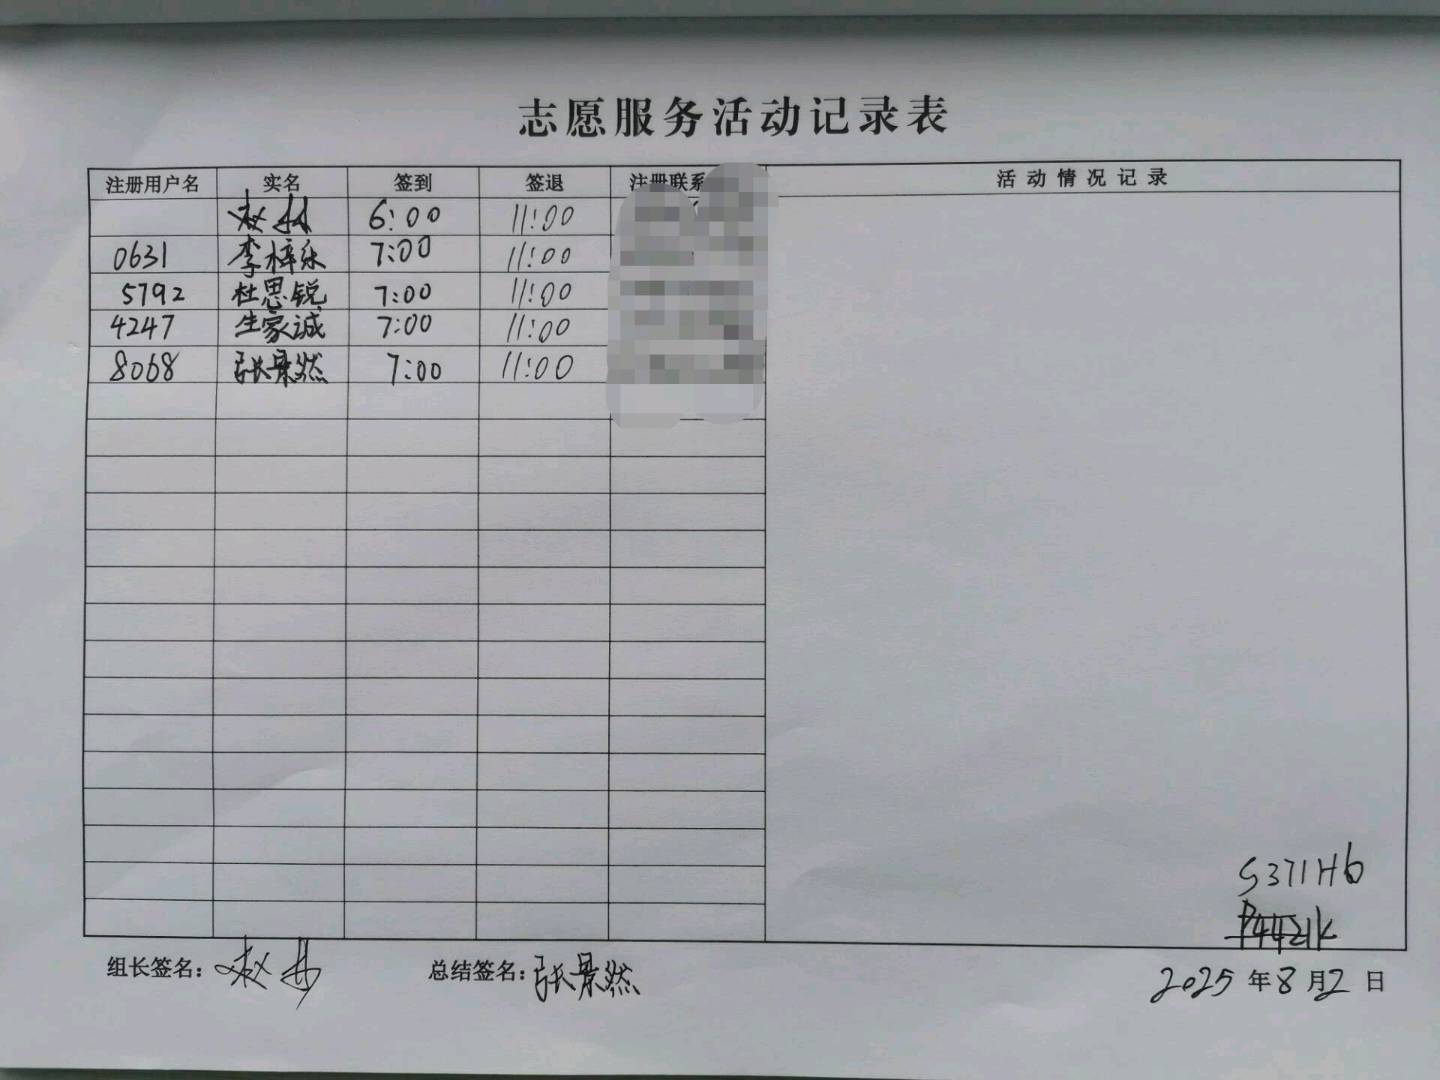 志愿服务活动记录表
注册用户名 实名 签到 签退 注册联系 活动情况记录
赵 6:00 11:00
0631 李梓乐 7:00 11:00
5792 杜思锐 7:00 11:00
4247 生家诚 7:00 11:00
8068 张景然 7:00 11:00
S371H6
P4421K
组长签名: 赵 总结签名: 张景然
2025 年 8 月 2 日